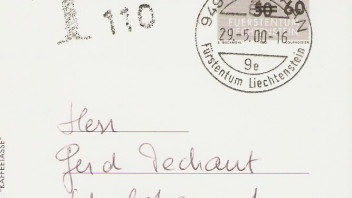 T 110
30 60
FÜRSTENTUM
29.-5.00-16
9e
Fürstentum Liechtenstein
Herr
Gerd Dechant
"KAFFEETASSE"